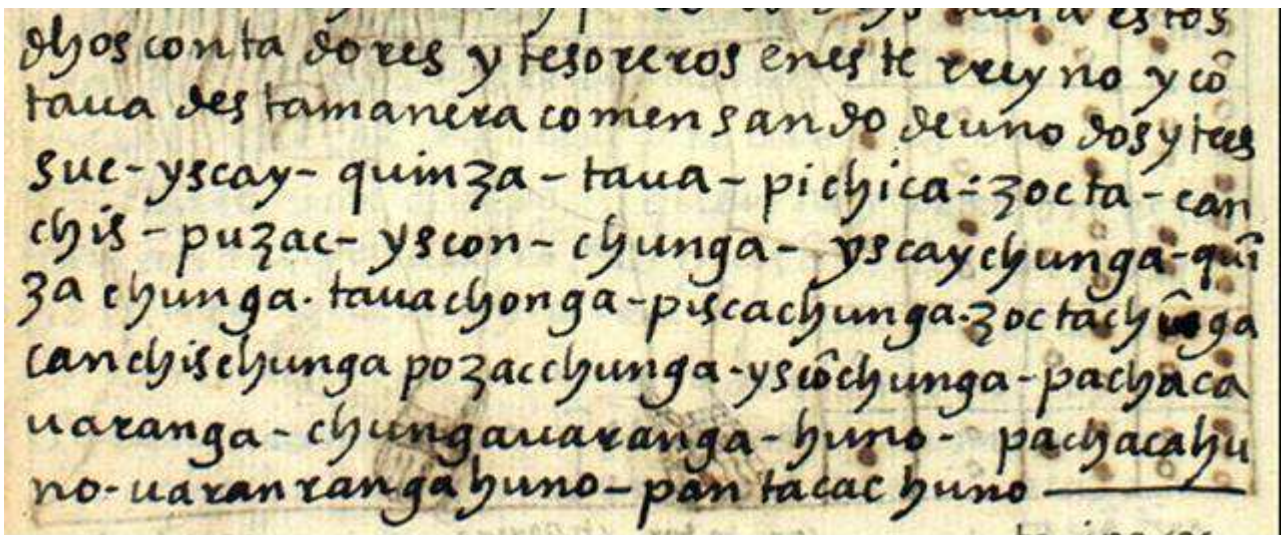 estos
dhos conta dores y tesoreros eneste rreyno y cô
taua des tamanera comensando deuno dos y tres
suc - yscay - quinza - taua - pichica - zocta - can
chis - puzac - yscon - chunga - yscaychunga - quî
za chunga. tauachonga - piscachunga. zoctachûga
canchischunga pozacchunga - yscôchunga - pachaca
uaranga - chungauaranga - huno - pachacahu
no - uaranranga huno - pantacac huno